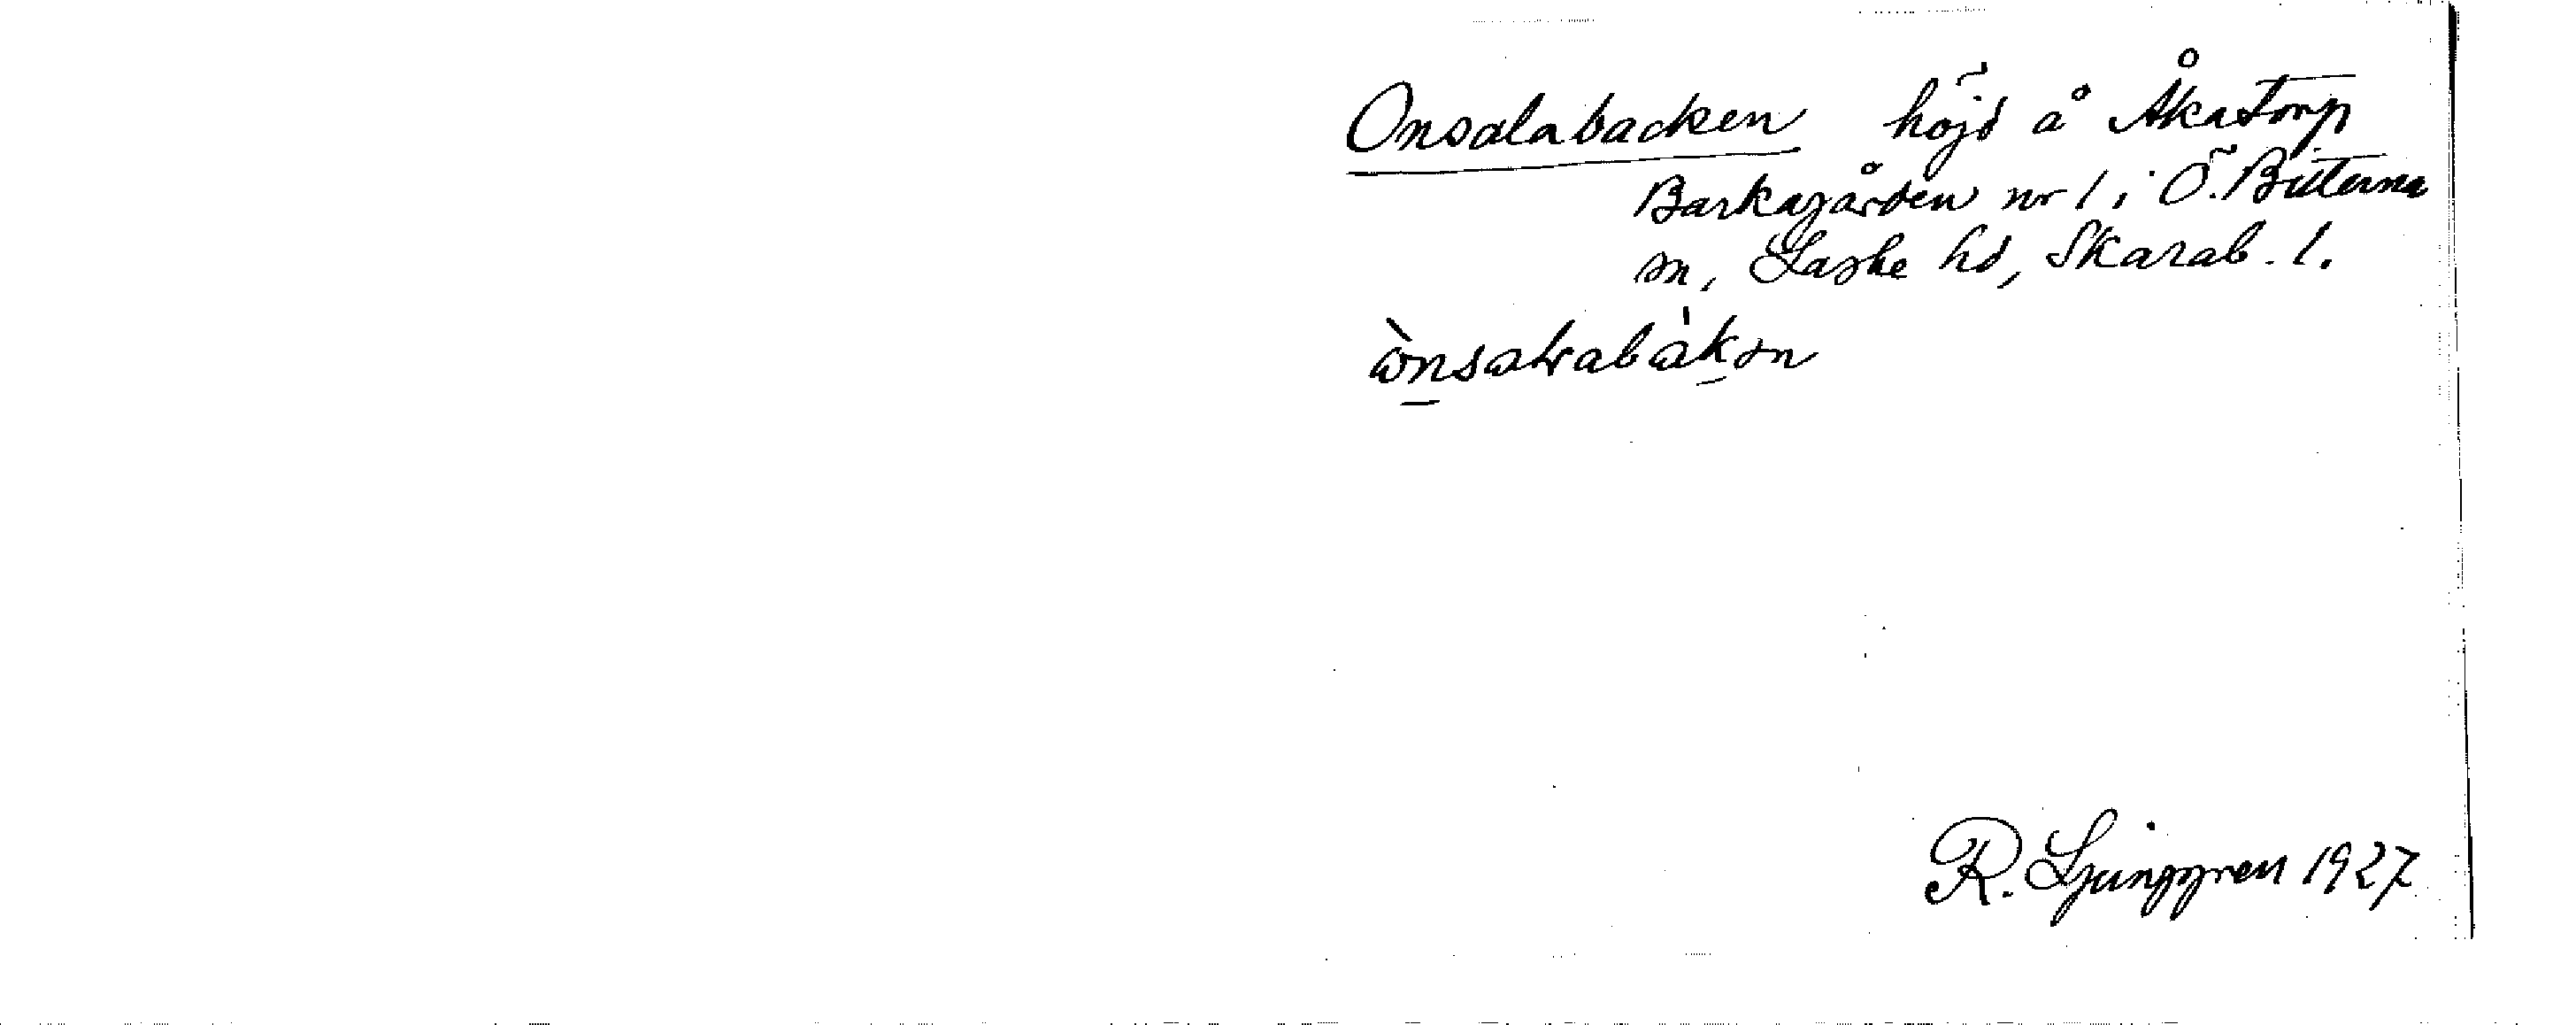 Onsalabacken höjd å Åkatorp
Barkagården nr 1 i Ö. Bitterna
sn, Laske hd, Skarab. l.
R. Ljunggren 1927